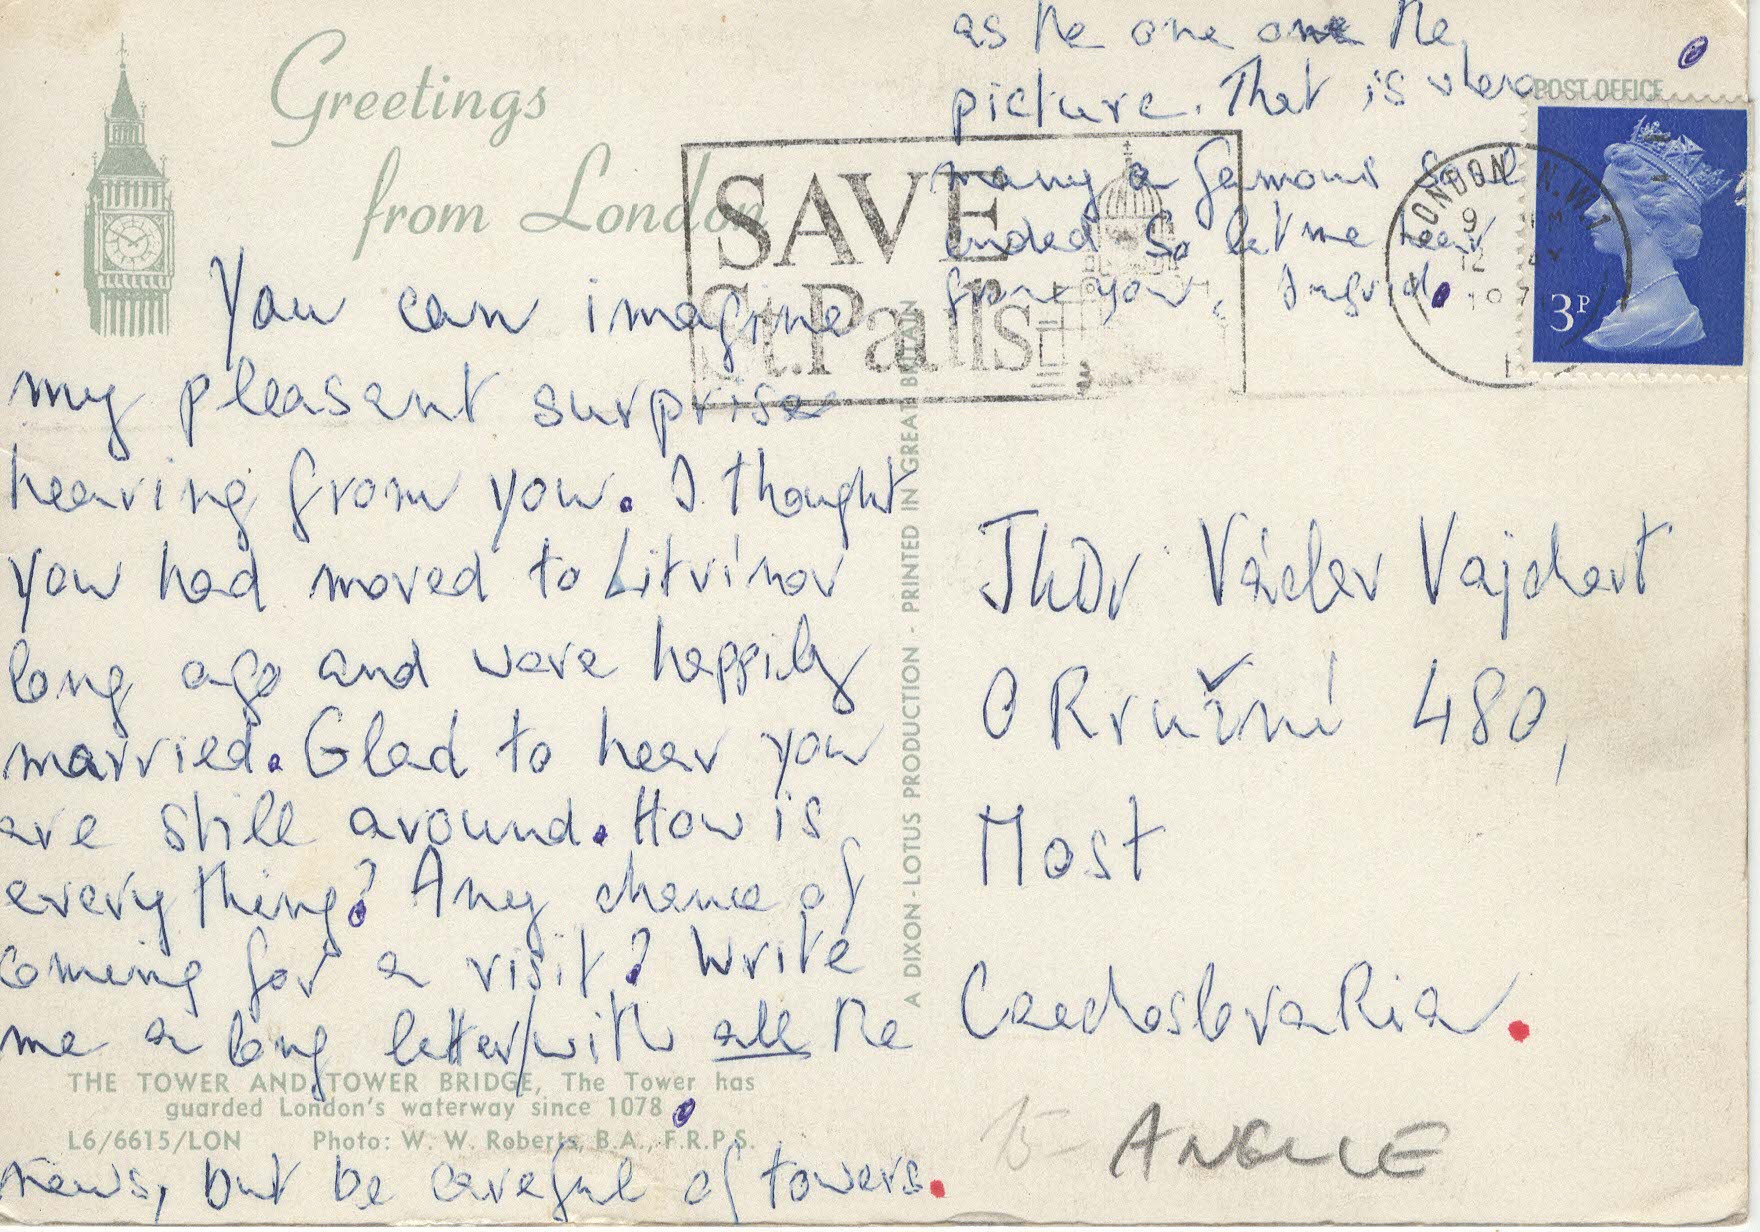 Greetings
from London
You can imagine
my pleasant surprise
hearing from you. I thought
you had moved to Litvínov
long ago and were happily
married. Glad to hear you
are still around. How is
everything? Any chance of
coming for a visit? Write
me a long letter/with all the
THE TOWER AND TOWER BRIDGE, The Tower has
guarded London's waterway since 1078
L6/6615/LON Photo: W. W. Roberts, B.A., F.R.P.S.
news, but be careful of towers.
as the one one the
picture. That is where
many a famous soul
ended. So let me hear
from you, Ingrid.
POST OFFICE
SAVE
St.Paul's
LONDON N.W.1
9
12
197
3P
A DIXON-LOTUS PRODUCTION - PRINTED IN GREAT BRITAIN
JUDr Václav Vajchart
Okružní 480,
Most
Czechoslovakia.
15-
ANGLIE